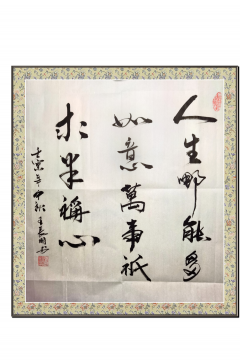 人生哪能多
如意萬事祇
求半稱心
壬寅年中秋